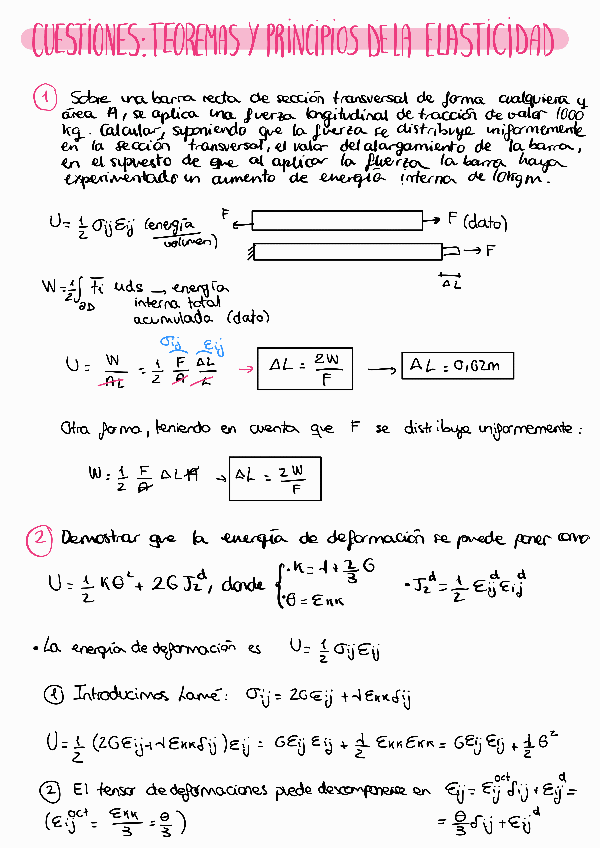 CUESTIONES: TEOREMAS Y PRINCIPIOS DE LA ELASTICIDAD
1 Sobre una barra recta de sección transversal de forma cualquiera y
área A, se aplica una fuerza longitudinal de tracción de valor 1000
kg. Calcular, suponiendo que la fuerza se distribuye uniformemente
en la sección transversal, el valor del alargamiento de la barra,
en el supuesto de que al aplicar la fuerza la barra haya
experimentado un aumento de energía interna de 10kgm.
U = 1/2 σij εij (energía/volumen)
F F (dato)
F
ΔL
W = 1/2 ∫∂D Fi uds → energía
interna total
acumulada (dato)
σij εij
U = W/AL = 1/2 F/A ΔL/L → ΔL = 2W/F → ΔL = 0,02m
Otra forma, teniendo en cuenta que F se distribuye uniformemente:
W = 1/2 F/A ΔL A → ΔL = 2W/F
2 Demostrar que la energía de deformación se puede poner como
U = 1/2 Kθ² + 2G J₂ᵈ, donde { · K = λ + 2/3 G · θ = εkk · J₂ᵈ = 1/2 εijᵈ εijᵈ
· La energía de deformación es U = 1/2 σij εij
1 Introducimos Lamé: σij = 2Gεij + λεkk δij
U = 1/2 (2Gεij + λεkk δij) εij = Gεij εij + λ/2 εkk εkk = Gεij εij + λ/2 θ²
2 El tensor de deformaciones puede descomponerse en εij = εij^oct δij + εijᵈ =
(εij^oct = εkk/3 = θ/3) = θ/3 δij + εijᵈ